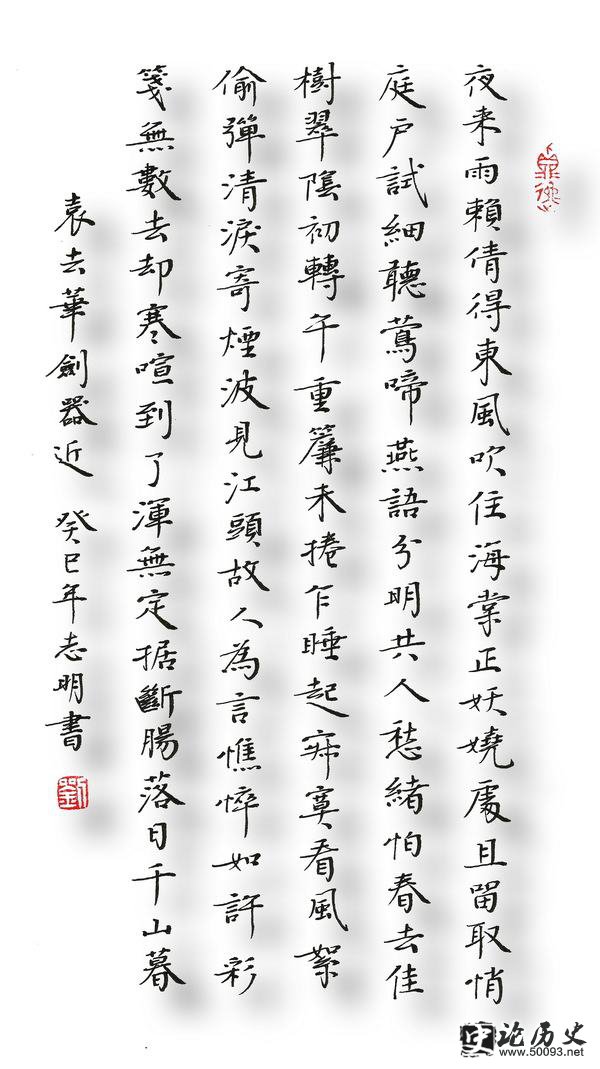 夜来雨賴倩得東風吹住海棠正妖嬈處且留取悄
庭戶試細聽鶯啼燕語分明共人愁緒怕春去佳
樹翠陰初轉午重簾未捲乍睡起寂寞看風絮
偷彈清淚寄煙波見江頭故人為言憔悴如許彩
箋無數去却寒喧到了渾無定据斷腸落日千山暮
袁去華劍器近 癸巳年志明書
劉
论历史
www.50093.net